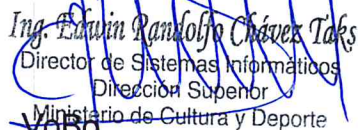 Ing. Edwin Randolfo Chávez Taks
Director de Sistemas Informáticos
Dirección Superior
Ministerio de Cultura y Deporte
VoBo